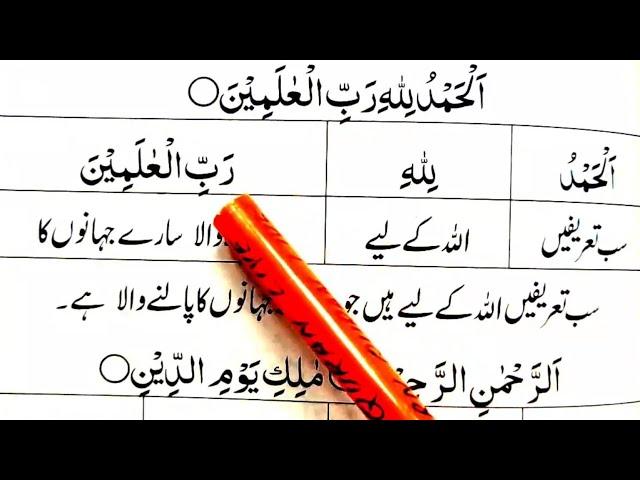 اَلْحَمْدُ لِلّٰهِ رَبِّ الْعٰلَمِیْنَ ○
اَلْحَمْدُ لِلّٰهِ رَبِّ الْعٰلَمِیْنَ
سب تعریفیں اللہ کے لیے سارے جہانوں کا
سب تعریفیں اللہ کے لیے ہیں جو جہانوں کا پالنے والا ہے۔
اَلرَّحْمٰنِ مٰلِكِ یَوْمِ الدِّیْنِ ○